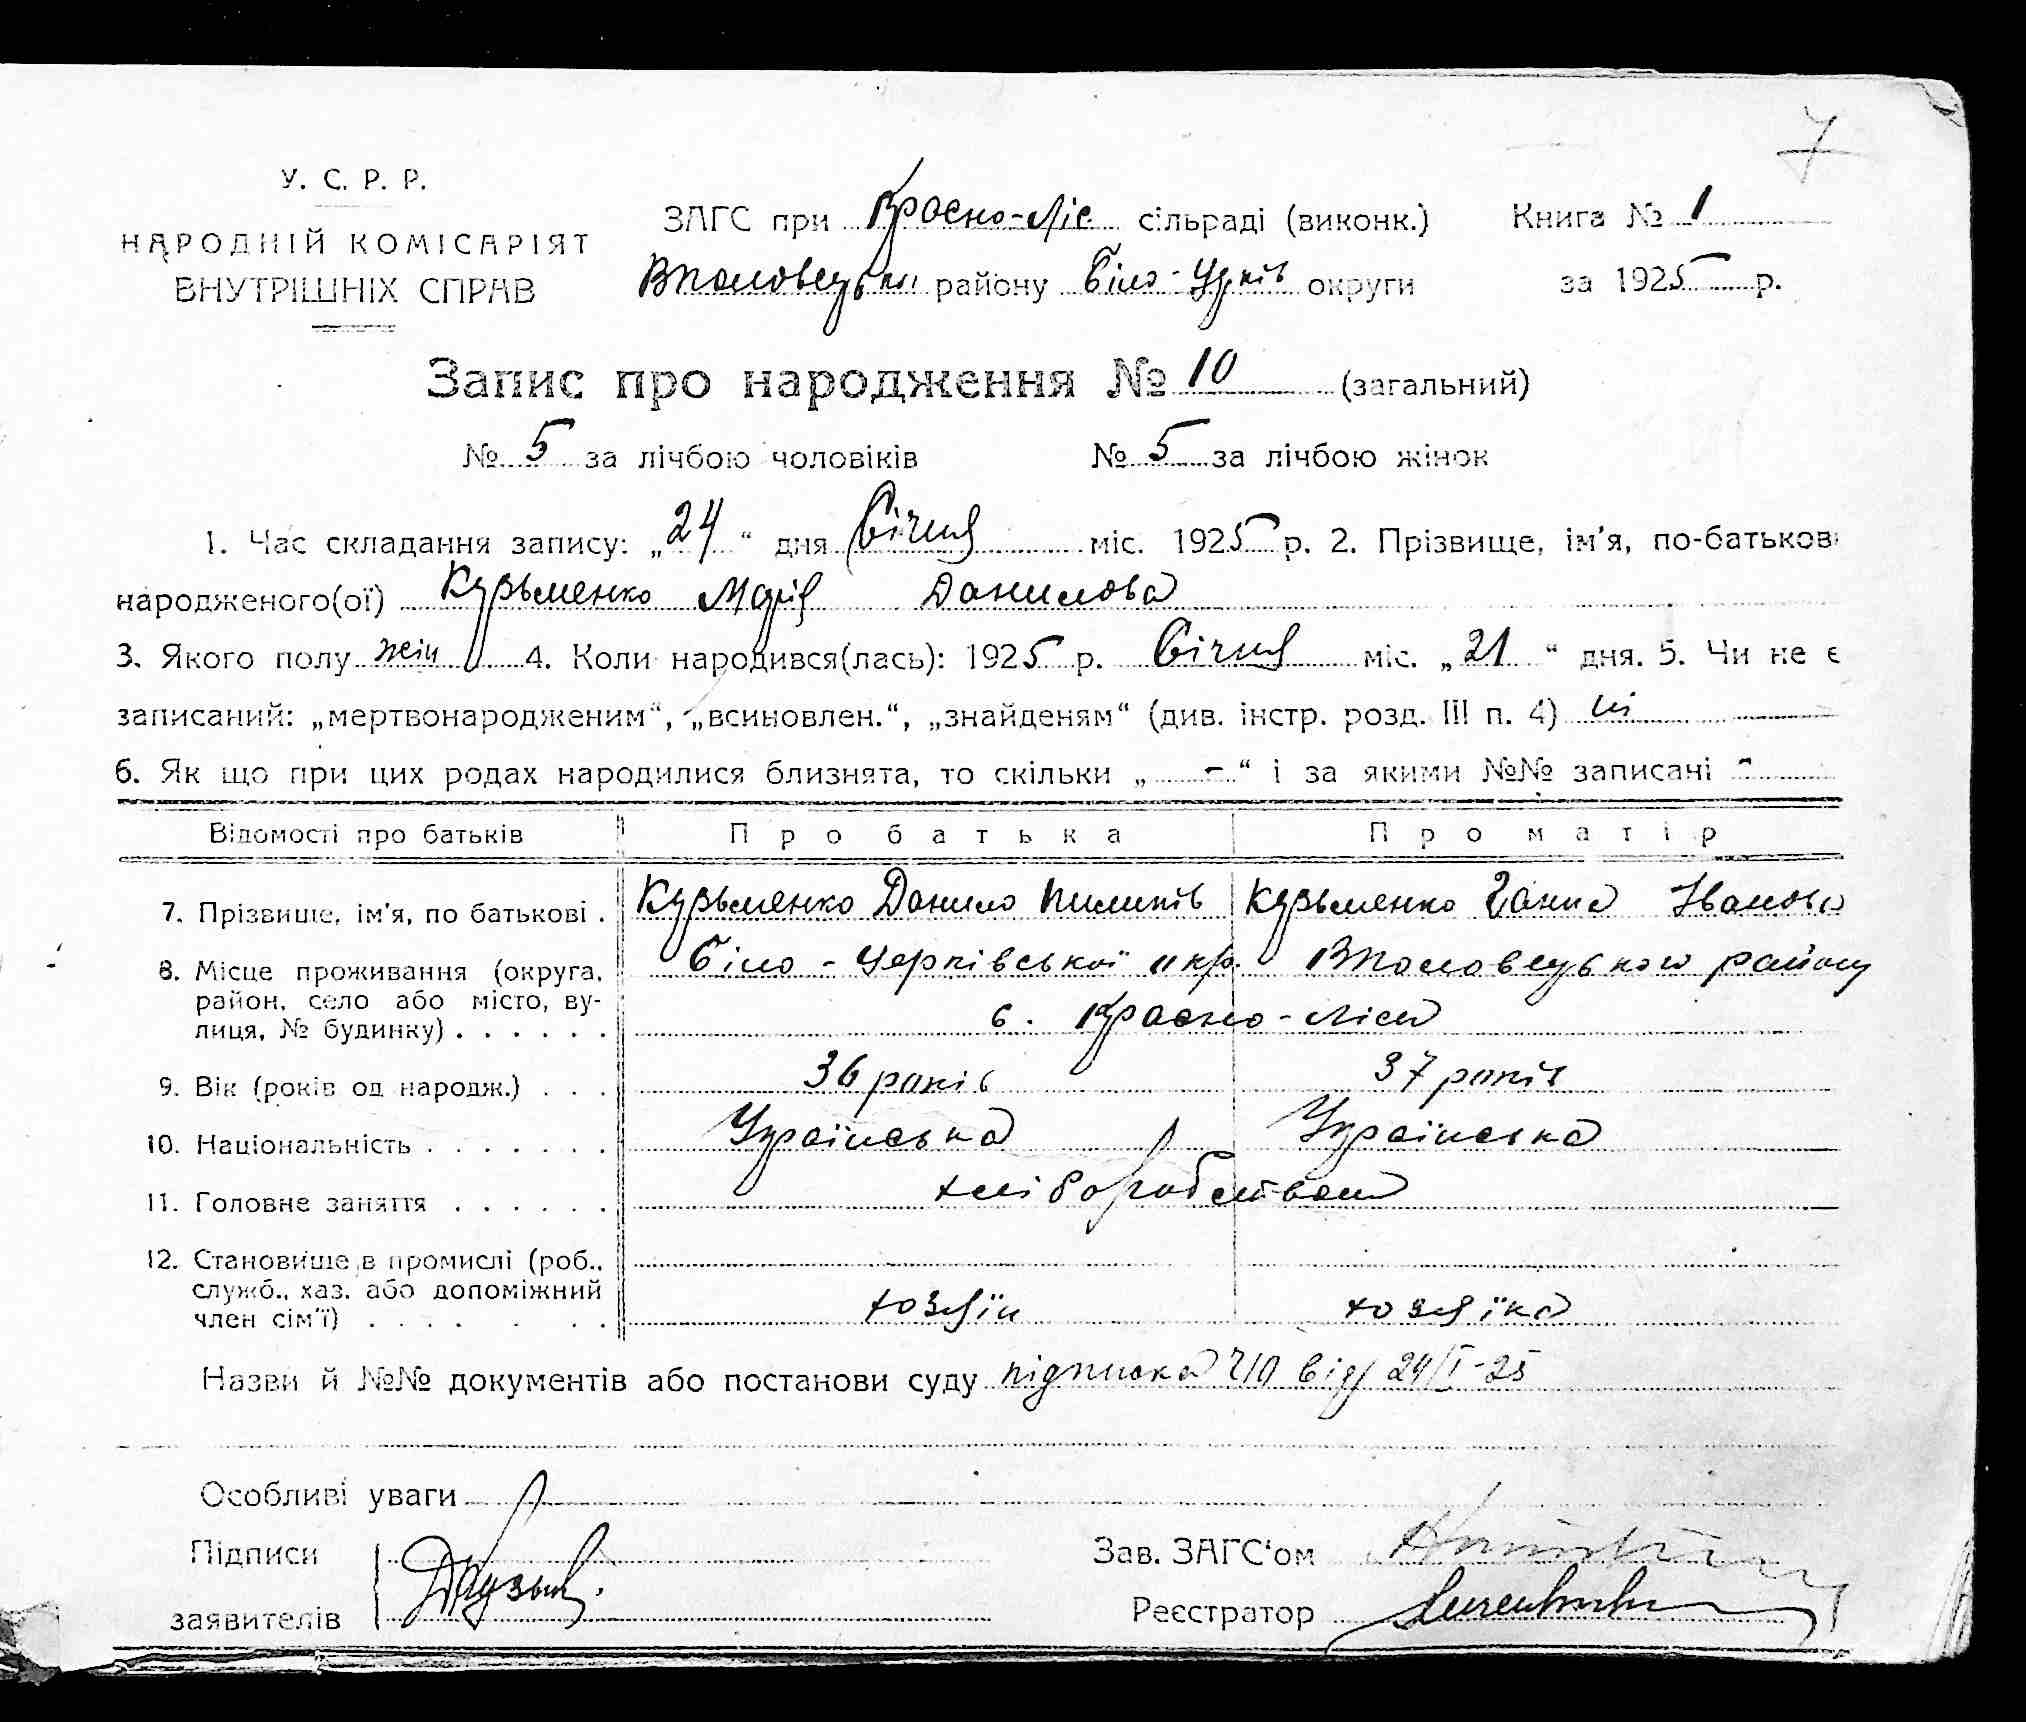 7
У. С. Р. Р.
НАРОДНІЙ КОМІСАРІЯТ
ВНУТРІШНІХ СПРАВ
ЗАГС при Красно-Ліс сільраді (виконк.)
Вполовецьком району Біло-Церків округи
Книга № 1
за 1925 р.
Запис про народження № 10 (загальний)
№ 5 за лічбою чоловіків № 5 за лічбою жінок
1. Час складання запису: „24“ дня Січня міс. 1925 р. 2. Прізвище, ім'я, по-батькові
народженого(ої) Кузьменко Марія Данилова
3. Якого полу жін 4. Коли народився(лась): 1925 р. Січня міс. „21“ дня. 5. Чи не є
записаний: „мертвонародженим“, „всиновлен.“, „знайденям“ (див. інстр. розд. III п. 4) ні
6. Як що при цих родах народилися близнята, то скільки „ - “ і за якими №№ записані -
Відомості про батьків Про батька Про матір
7. Прізвище, ім'я, по батькові . Кузьменко Данило Пилипів Кузьменко Ганна Іванова
8. Місце проживання (округа, Біло-Церківської окр. Вполовецького району
район, село або місто, ву-
лиця, № будинку) . . . . . . с. Красно-Ліси
9. Вік (років од народж.) . . . 36 років 37 років
10. Національність . . . . . . . Українська Українська
11. Головне заняття . . . . . . хліборобством
12. Становище в промислі (роб.,
служб., хаз. або допоміжний
член сім'ї) . . . . . . . хозяїн хозяїка
Назви й №№ документів або постанови суду підписка Ч10 від 24/I-25
Особливі уваги
Підписи
заявителів
Зав. ЗАГС‘ом
Реєстратор